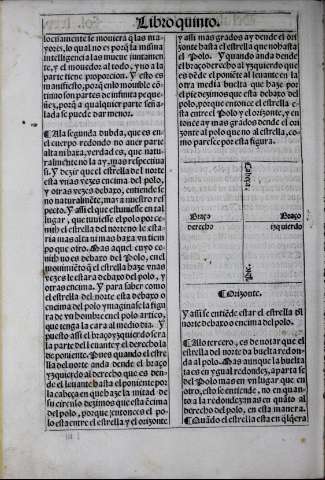 Libro quinto.
locissimamente le mouiera q̃ las ma
yores, lo qual no es porq̃ la misma
inteligencia las mueue juntamen
te, y el mouedor al todo, y no a la
parte tiene proporcion. Y esto es
manifiesto, porq̃ en lo mouible cõ
tino son partes de infinita peque
ñez, porq̃ a qualquier parte seña
lada se puede dar menor.
¶ A la segunda dubda, que es en
el cuerpo redondo no auer parte
alta ni baxa, verdad es, que natu
ralmẽte no la ay, mas respectiua
si. Y dezir que el estrella del norte
esta vnas vezes encima del polo,
y otras vezes debaxo, entiende se
no naturalmẽte, mas a nuestro res
pecto. Y assi el que estuuiesse en tal
lugar, que tuuiesse el polo por ce
nith el estrella del norte no le esta
ria mas alta ni mas baxa vn tiem
po que otro. Mas aquel cuyo ce
nith no es debaxo del Polo, en el
mouimiẽto q̃ el estrella haze vnas
vezes le estara debaxo del polo, y
otras encima. Y para saber como
el estrella del norte esta debaxo o
encima del polo ymaginasse la figu
ra de vn hombre en el polo artico,
que tenga la cara al medio dia. Y
puesto assi el braço yzquierdo sera
la parte del leuante y el derecho la
de poniente. Pues quando el estre
lla del norte anda dende el braço
yzquierdo al derecho que es den
de el leuante hasta el poniente por
la cabeça en que haze la mitad de
su circulo dezimos que esta ẽcima
del polo, porque entonces el po
lo esta entre el estrella y el orizonte
y assi mas grados ay dende el ori
zonte hasta el estrella que no hasta
el Polo. Y quando anda dende
el braço derecho al yzquierdo que
es dẽde el poniẽte al leuante en la
otra media buelta que haze por
el pie dezimos que esta debaxo del
polo, porque entonce el estrella e
sta entre el Polo y el orizonte, y en
tonce ay mas grados dende el ori
zonte al polo que no al estrella, co
mo paresce por esta figura.
Cabeça
Braço
derecho
Braço
izquierdo
Pie.
¶ Orizonte.
Y assi se entiẽde estar el estrella dl
norte debaxo o encima del polo.
¶ Al o tercero, es de notar que el
estrella del norte da buelta redon
da al polo. Mas aunque la buelta
ta es en ygual redondez, aparta se
del Polo mas en vn lugar que en
otro, esto se entiende, no en quan
to a la redondez mas en quãto al
derecho del polo, en esta manera.
¶ Quãdo el estrella esta en q̃lq̃era